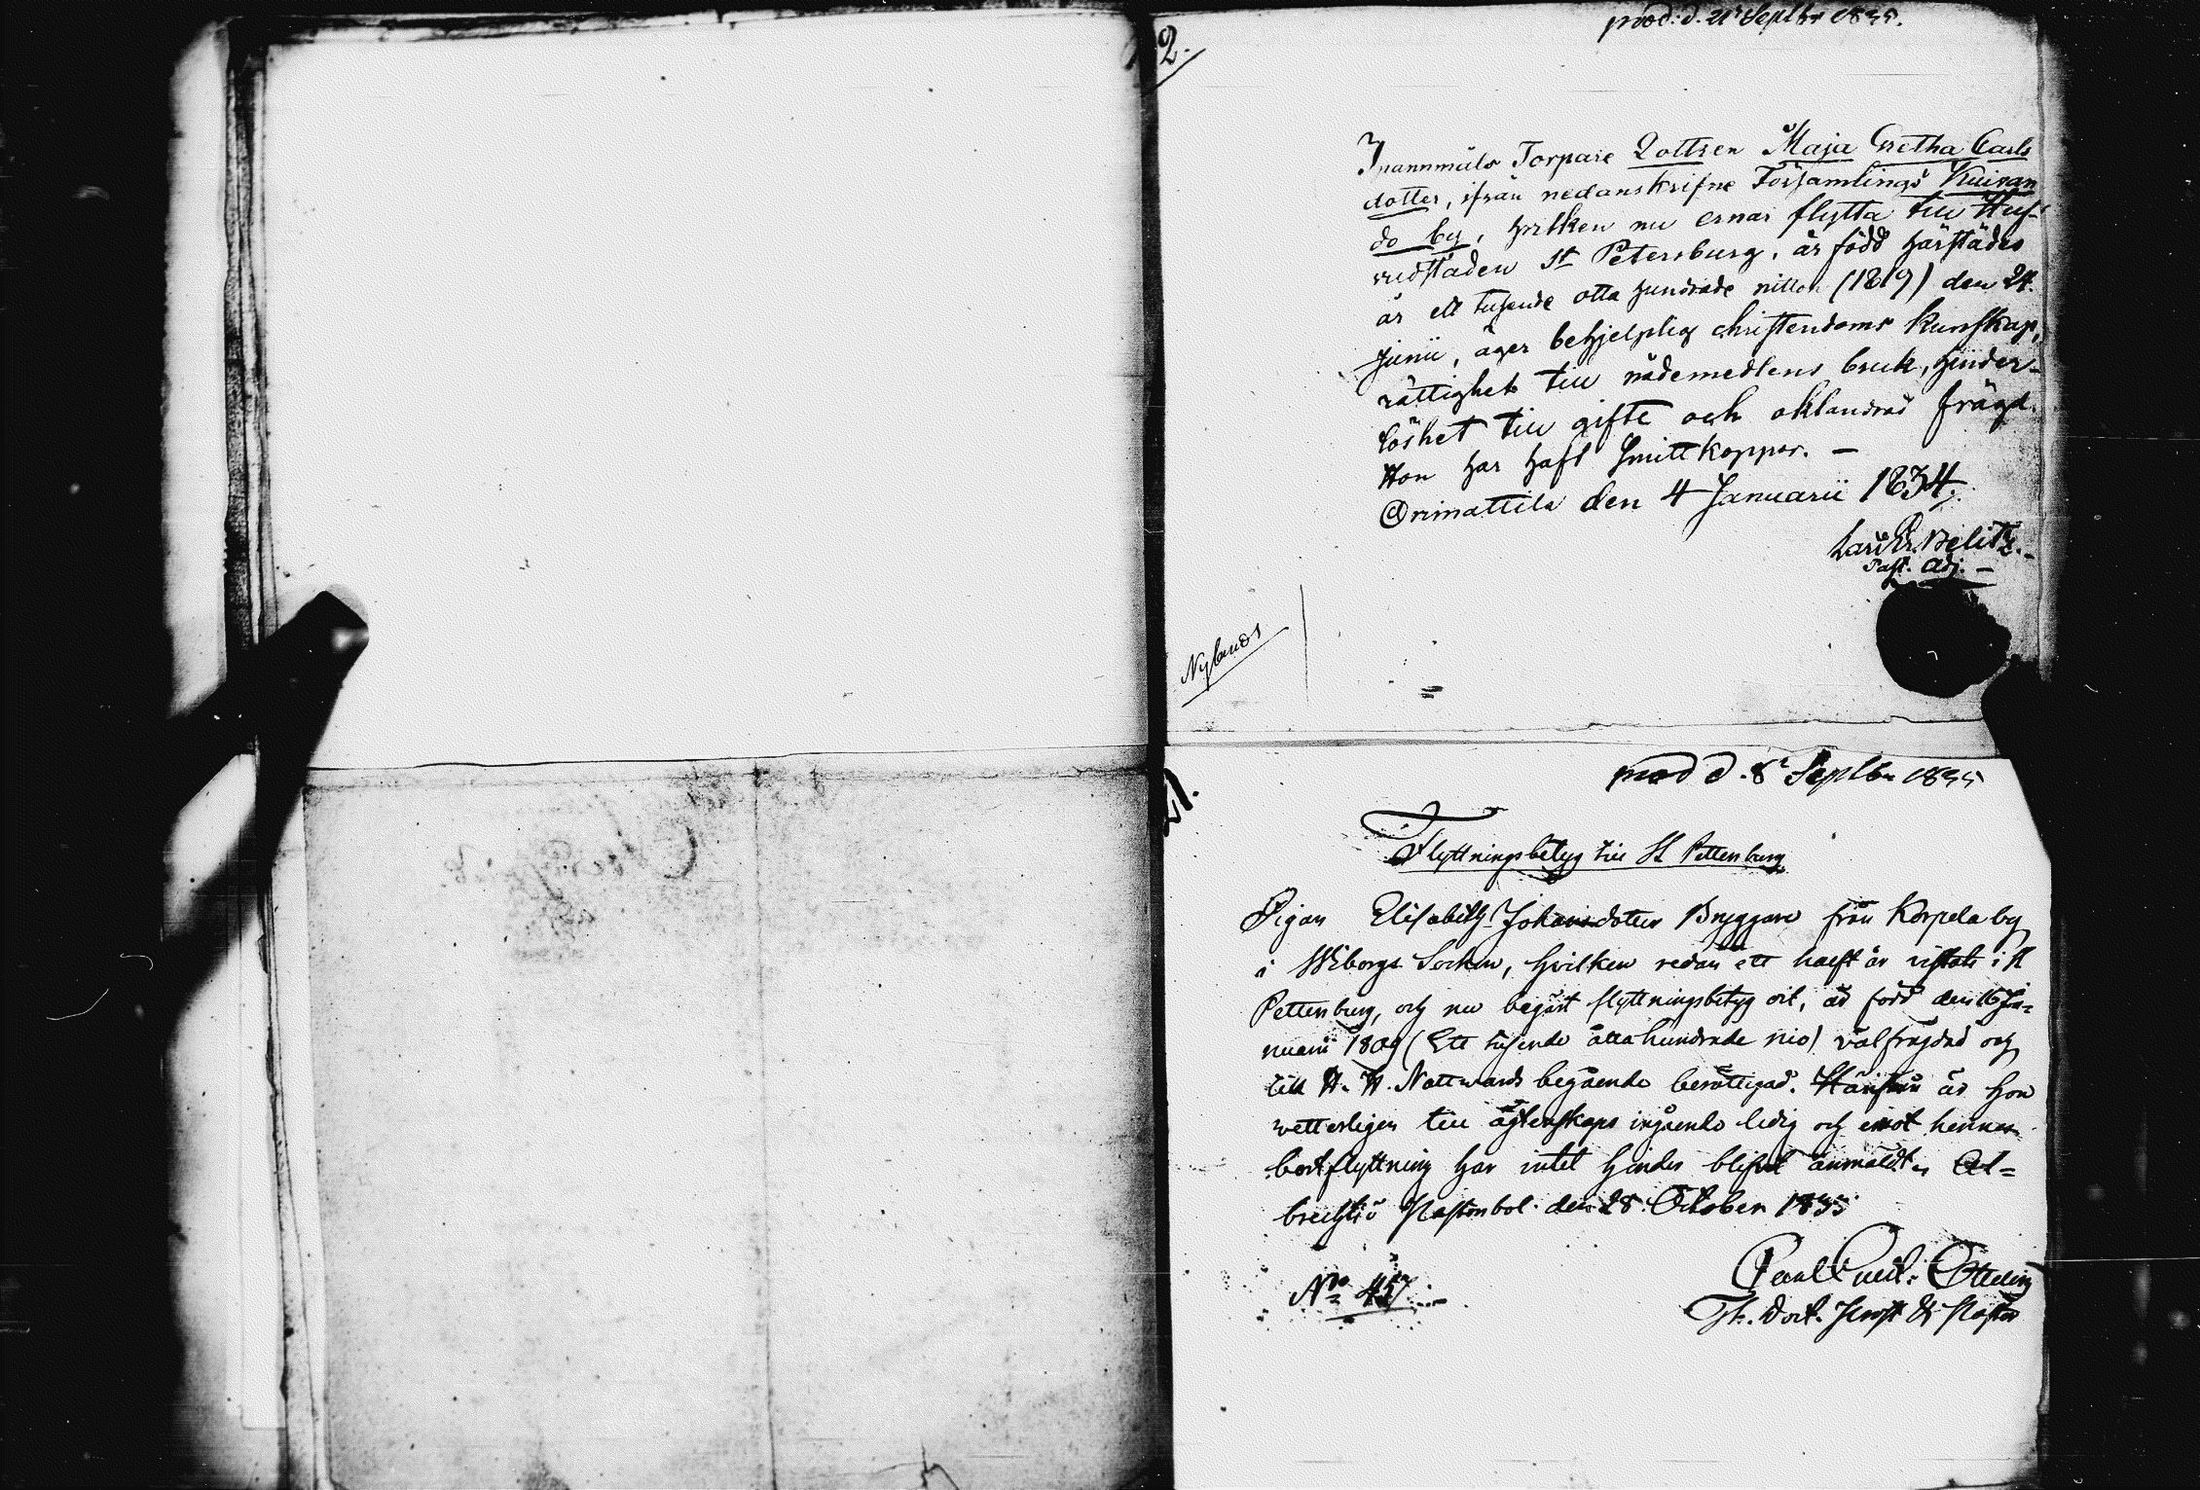 2.
prod: d. 21 Septbr 1835.
Inannmäls Torpare Dottren Maja Gretha Carls
dotter, ifrån nedanskrifne Församlings Kuivan
do by, hvilken nu ernar flytta till Huf-
vudstaden St Petersburg, är född härstädes
år ett tusende otta hundrade nitton (1819) den 24.
Junii, äger behjelplig christendoms kunskap,
rättighet till nådemedlens bruk, hinder-
löshet till gifte och oklandrad frägd.
Hon har haft Smittkoppor. —
Orimattila den 4 Januarii 1834.
Lars Er. Belitz. —
Past. Adj. —
Nylands
21.
prod d. 8 Septbr 1835
Flyttningsbetyg till St Pettersburg
Pigan Elisabeth Johansdotter Bryggare från Korpela by
i Wiborgs Socken, hvilken redan ett halft år vistats i St
Pettersburg, och nu begärt flyttningsbetyg dit, är född den 16 Ja-
nuarii 1809 (Ett tusende åttahundrade nio) välfrägdad och
till H. H. Nattwards begående berättigad. Härifrån är hon
vetterligen till ägtenskaps ingående ledig och emot hennes
bortflyttning har intet hinder blifvit anmäldt. Al-
brechtsö Pastorsbol. den 28 October 1833
No 457
Carl Emil
Th. Doct. Prost & Pastor